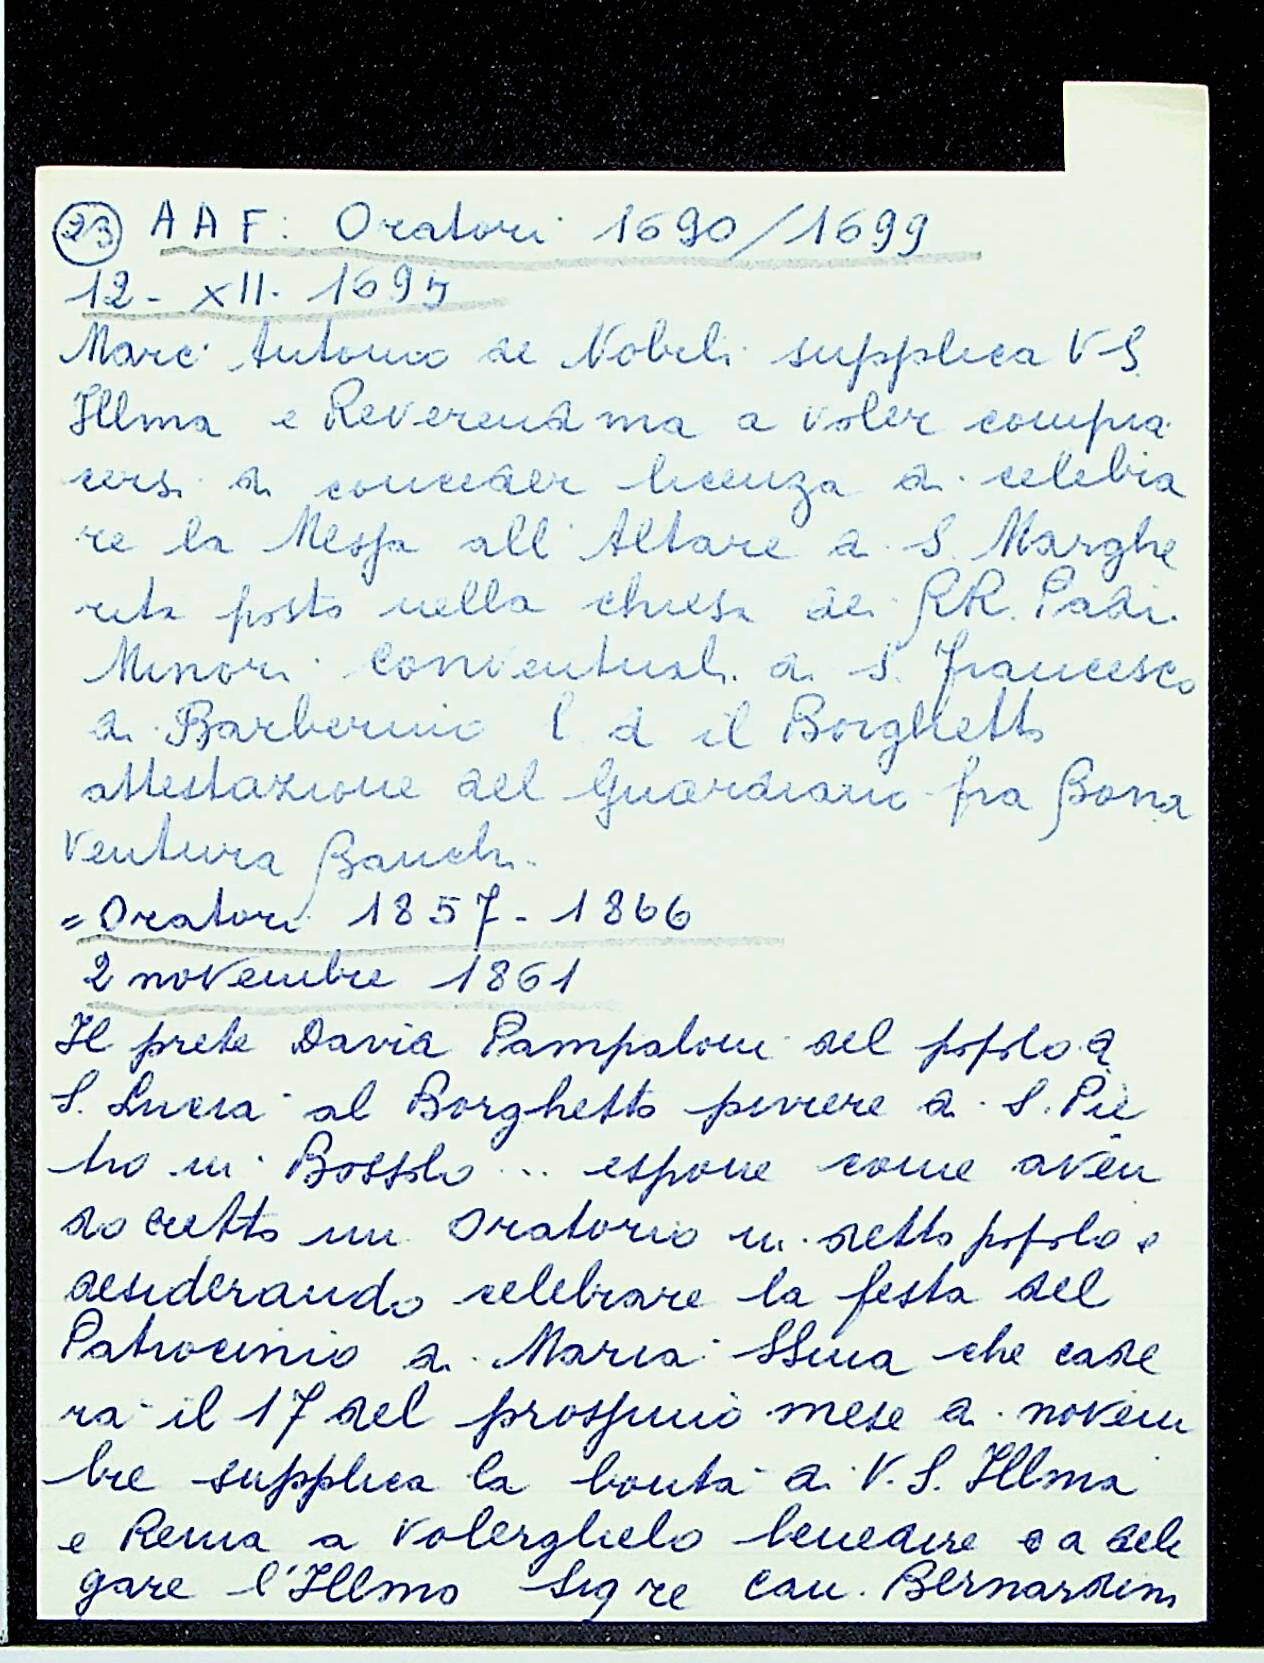 23 AAF: Oratori 1690/1699
12- XII. 1695
Marc' Antonio de Nobili supplica V S.
Illma e Reverendma a voler compia
cersi di conceder licenza di celebra
re la Messa all' Altare di S. Marghe
rita posto nella chiesa dei RR. Padri
Minori Conventuali di S. Francesco
di Barberino l d il Borghetto
attestazione del Guardiano fra Bona
ventura Bauch.
= Oratori 1857-1866
2 novembre 1861
Il prete David Pampaloni del popolo di
S. Lucia al Borghetto piviere di S. Pie
tro in Bossolo ... espone come aven
do eretto un Oratorio in detto popolo e
desiderando celebrare la festa del
Patrocinio di Maria SSma che cade
rà il 17 del prossimo mese di novem
bre supplica la bontà di V. S. Illma
e Rema a volerglielo benedire o a dele
gare l'Illmo Sig re Can. Bernardino